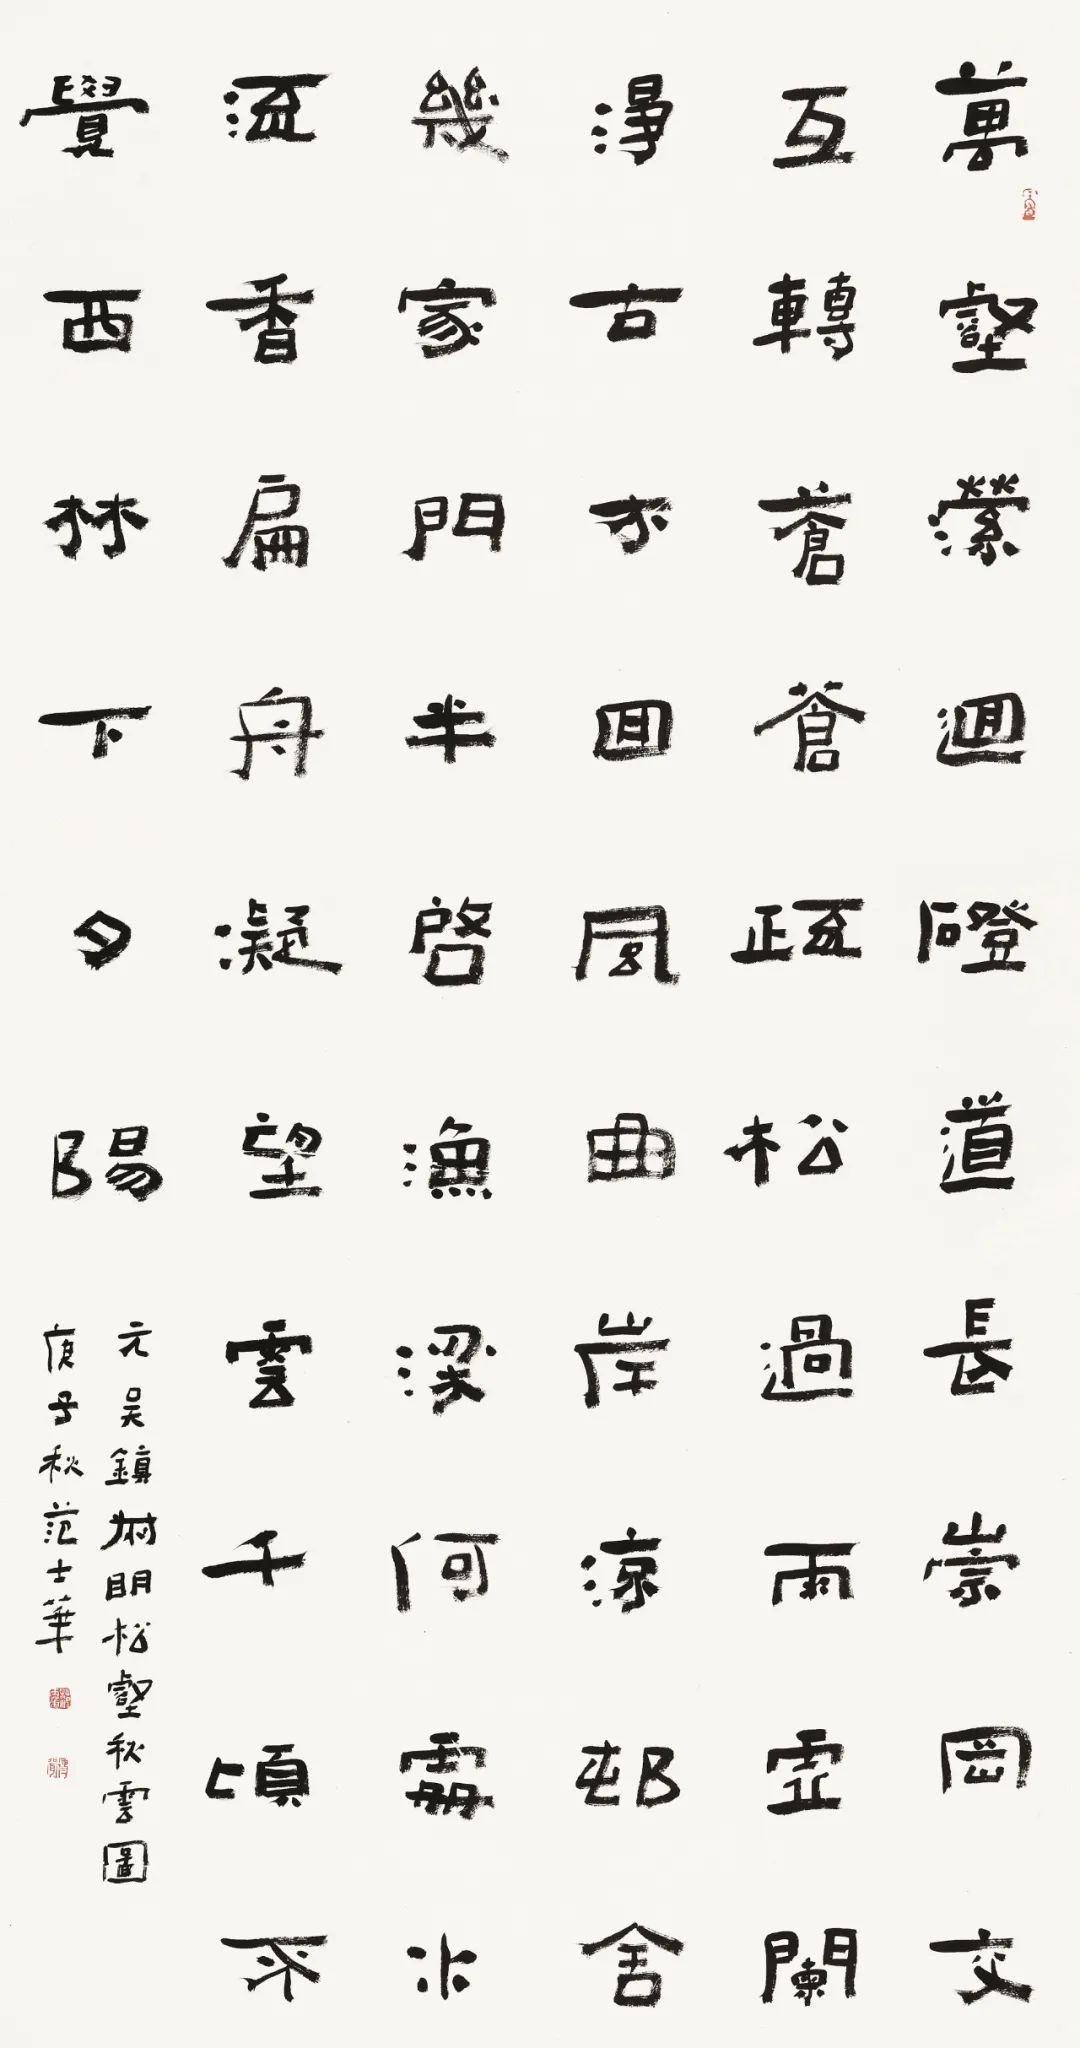 萬壑瀠迴磴道長崇岡交
互轉蒼蒼疏松過雨虛闌
淨古木回風曲岸涼邨舍
幾家門半啓漁梁何處水
流香扁舟凝望雲千頃不
覺西林下夕陽
元吳鎮叔明松壑秋雲圖
庚子秋范士華